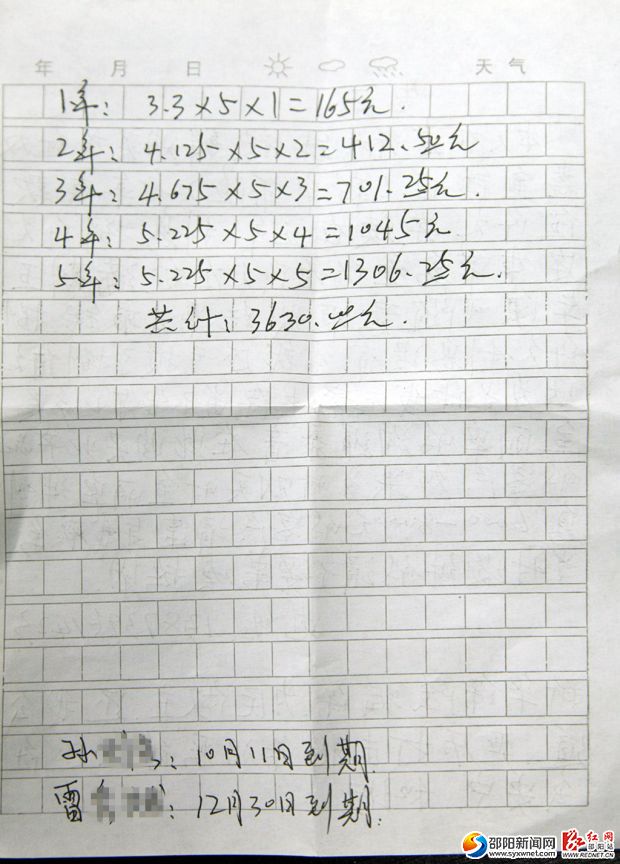 年 月 日 天气
1年: 3.3×5×1=165元.
2年: 4.125×5×2=412.50元
3年: 4.675×5×3=701.25元.
4年: 5.225×5×4=1045元
5年: 5.225×5×5=1306.25元.
共计: 3630.00元.
孙 : 10月11日到期
雷 : 12月30日到期.
邵阳新闻网
www.syxwnet.com
红网
邵阳站
WWW.REDNET.CN